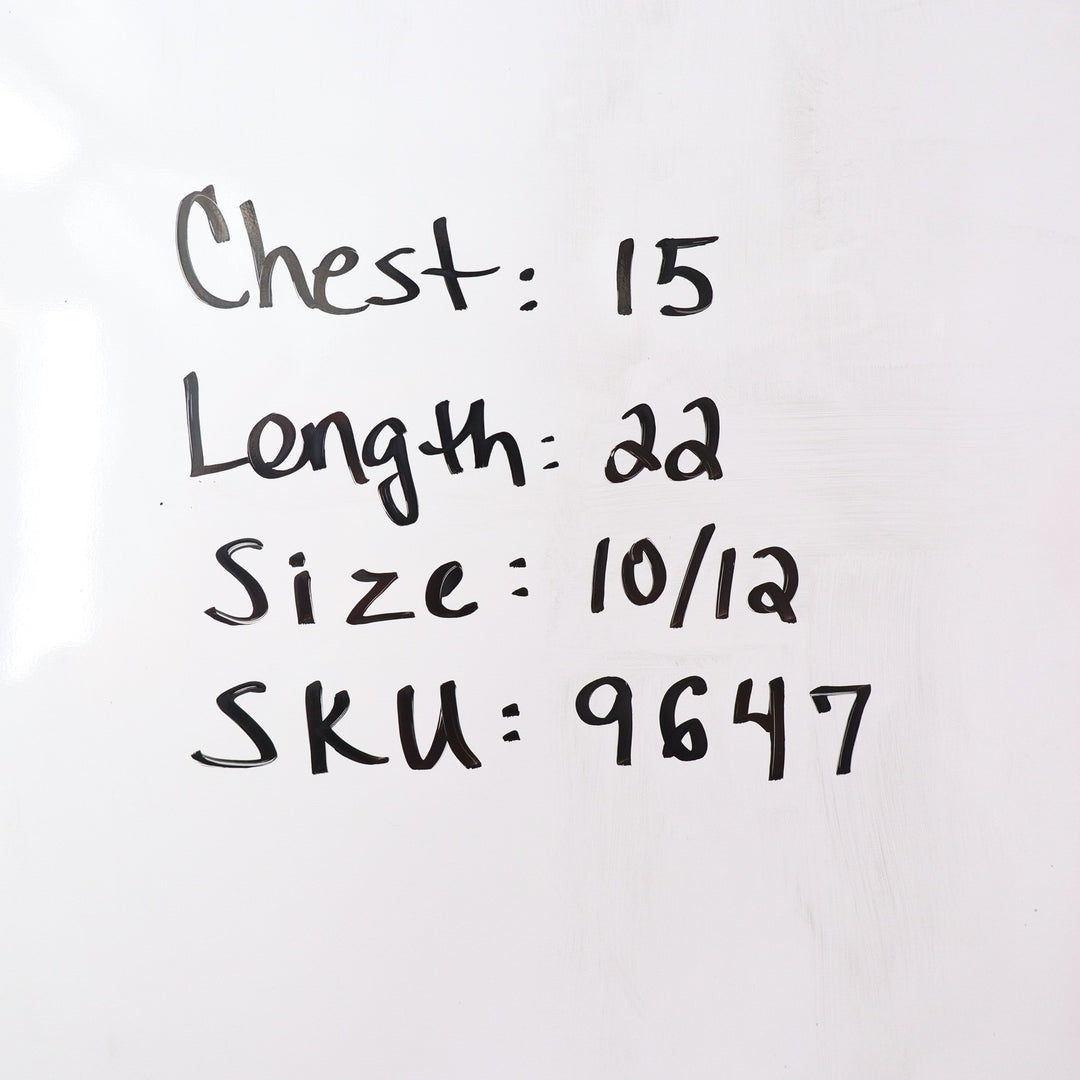 Chest: 15
Length: 22
Size: 10/12
SKU: 9647